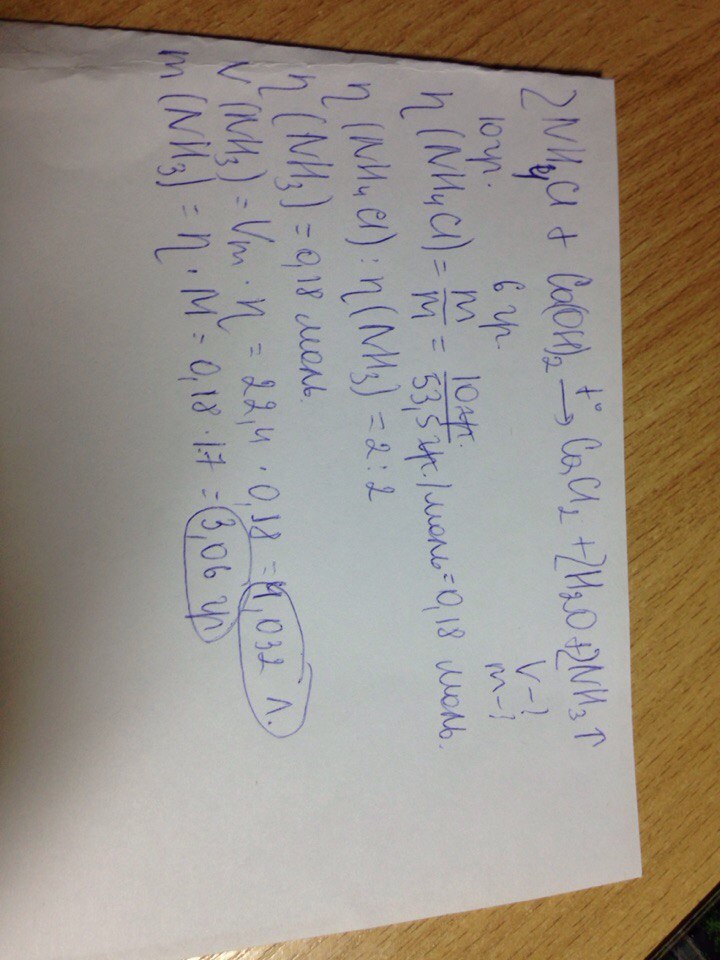 2NH4Cl + Ca(OH)2 →t° CaCl2 + 2H2O + 2NH3↑
10гр. 6 гр. V-?
m-?
η (NH4Cl) = m/M = 10гр./53,5гр./моль = 0,18 моль.
η (NH4Cl) : η (NH3) = 2:2
η (NH3) = 0,18 моль.
V (NH3) = Vm · η = 22,4 · 0,18 = 4,032 л.
m (NH3) = η · M = 0,18 · 17 = 3,06 гр